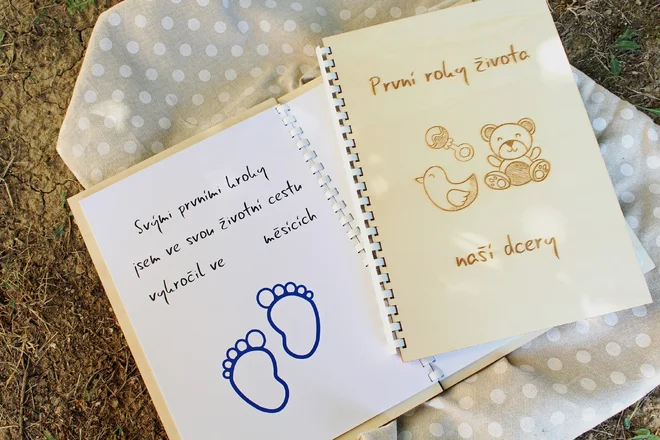 Svými prvními kroky
jsem ve svou životní cestu
vykročil ve měsících
První roky života
naší dcery